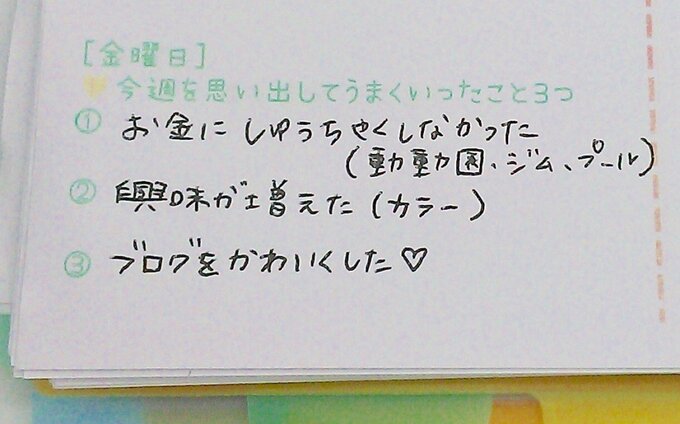 [金曜日]
今週を思い出してうまくいったこと3つ
① お金にしゆうちゃくしなかった
(動動園、ジム、プール)
② 興味が増えた(カラー)
③ ブログをかわいくした♡